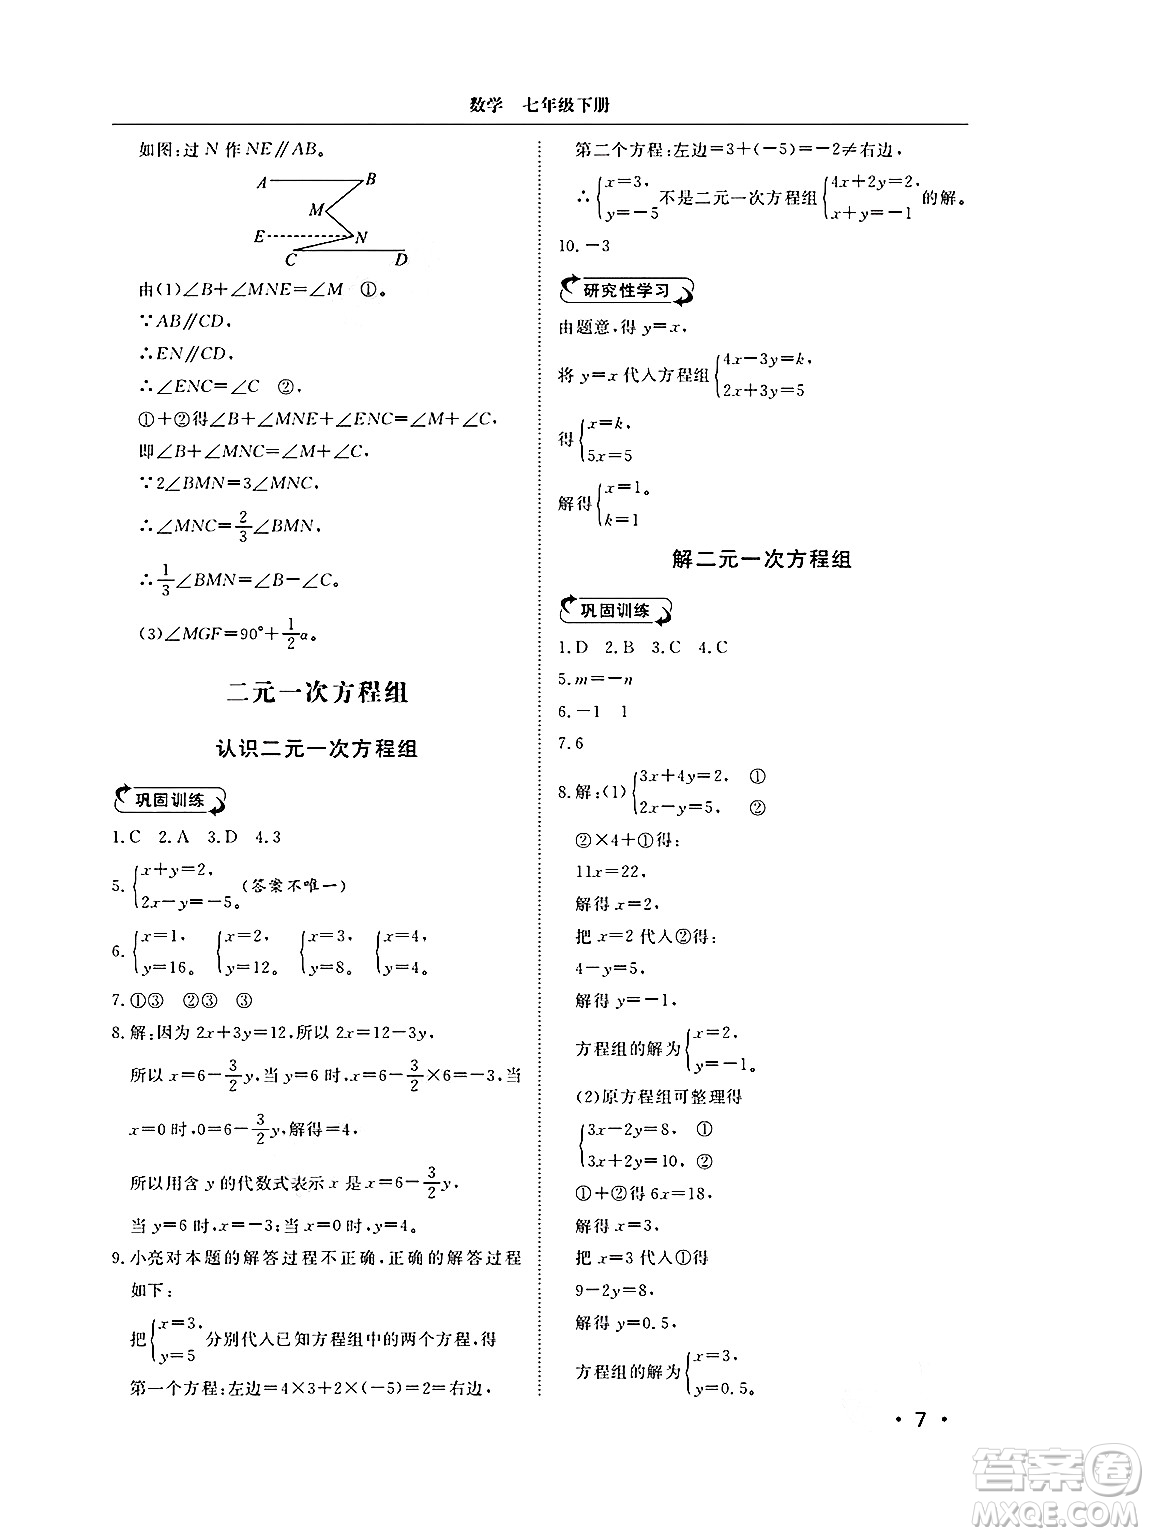 数学 七年级下册
如图:过 N 作 NE∥AB。
A B
M
E N
C D
由(1)∠B+∠MNE=∠M ①。
∵AB∥CD,
∴EN∥CD,
∴∠ENC=∠C ②,
①+②得∠B+∠MNE+∠ENC=∠M+∠C,
即∠B+∠MNC=∠M+∠C,
∵2∠BMN=3∠MNC,
∴∠MNC=2/3∠BMN,
∴1/3∠BMN=∠B-∠C。
(3)∠MGF=90°+1/2α。
二元一次方程组
认识二元一次方程组
巩固训练
1.C 2.A 3.D 4.3
5.{x+y=2, 2x-y=-5。(答案不唯一)
6.{x=1, y=16。 {x=2, y=12。 {x=3, y=8。 {x=4, y=4。
7.①③ ②③ ③
8.解:因为 2x+3y=12,所以 2x=12-3y,
所以 x=6-3/2y,当 y=6 时,x=6-3/2×6=-3,当
x=0 时,0=6-3/2y,解得=4,
所以用含 y 的代数式表示 x 是 x=6-3/2y,
当 y=6 时,x=-3;当 x=0 时,y=4。
9.小亮对本题的解答过程不正确,正确的解答过程
如下:
把{x=3, y=5 分别代入已知方程组中的两个方程,得
第一个方程:左边=4×3+2×(-5)=2=右边,
第二个方程:左边=3+(-5)=-2≠右边,
∴{x=3, y=-5 不是二元一次方程组{4x+2y=2, x+y=-1 的解。
10.-3
研究性学习
由题意,得 y=x,
将 y=x 代入方程组{4x-3y=k, 2x+3y=5
得{x=k, 5x=5
解得{x=1。 k=1
解二元一次方程组
巩固训练
1.D 2.B 3.C 4.C
5.m=-n
6.-1 1
7.6
8.解:(1){3x+4y=2, ① 2x-y=5, ②
②×4+①得:
11x=22,
解得 x=2,
把 x=2 代入②得:
4-y=5,
解得 y=-1,
方程组的解为{x=2, y=-1。
(2)原方程组可整理得
{3x-2y=8, ① 3x+2y=10, ②
①+②得 6x=18,
解得 x=3,
把 x=3 代入①得
9-2y=8,
解得 y=0.5,
方程组的解为{x=3, y=0.5。
· 7 ·
答案圈
MXQE.COM